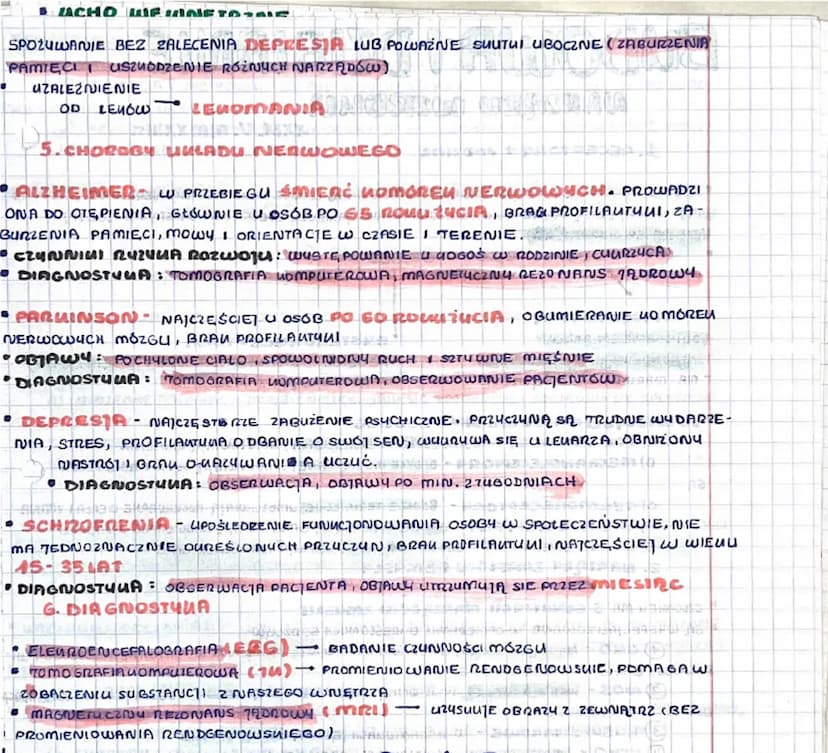 • UCHO WEWNĘTRZNE
SPOŻYWANIE BEZ ZALECENIA DEPRESJA LUB POWAŻNE SKUTKI UBOCZNE (ZABURZENIA
PAMIĘCI I USZKODZENIE RÓŻNYCH NARZĄDÓW)
• UZALEŻNIENIE
OD LEKÓW → LEKOMANIA
5. CHOROBY UKŁADU NERWOWEGO
• ALZHEIMER - W PRZEBIEGU ŚMIERĆ KOMÓREK NERWOWYCH. PROWADZI
ONA DO OTĘPIENIA, GŁÓWNIE U OSÓB PO 65 ROKU ŻYCIA, BRAK PROFILAKTYKI, ZA-
BURZENIA PAMIĘCI, MOWY I ORIENTACJE W CZASIE I TERENIE.
• CZYNNIKI RYZYKA ROZWOJU: WYSTĘPOWANIE U KOGOŚ W RODZINIE, CUKRZYCA
• DIAGNOSTYKA: TOMOGRAFIA KOMPUTEROWA, MAGNETYCZNY REZONANS JĄDROWY
• PARKINSON - NAJCZĘŚCIEJ U OSÓB PO 60 ROKU ŻYCIA, OBUMIERANIE KOMÓREK
NERWOWYCH MÓZGU, BRAK PROFILAKTYKI
• OBJAWY: POCHYLONE CIAŁO, SPOWOLNIONY RUCH I SZTYWNE MIĘŚNIE
• DIAGNOSTYKA: TOMOGRAFIA KOMPUTEROWA, OBSERWOWANIE PACJENTÓW
• DEPRESJA - NAJCZĘSTRZE ZABUŻENIE PSYCHICZNE. PRZYCZYNĄ SĄ TRUDNE WYDARZE-
NIA, STRES, PROFILAKTYKA ODBANIE O SWÓJ SEN, WYKRYWA SIĘ U LEKARZA, OBNIŻONY
NASTRÓJ I BRAK OKAZYWANIA UCZUĆ.
• DIAGNOSTYKA: OBSERWACJA, OBJAWY PO MIN. 2 TYGODNIACH
• SCHIZOFRENIA - UPOŚLEDZENIE FUNKCJONOWANIA OSOBY W SPOŁECZEŃSTWIE, NIE
MA JEDNOZNACZNIE OKREŚLONYCH PRZYCZYN, BRAK PROFILAKTYKI, NAJCZĘŚCIEJ W WIEKU
15-35 LAT
• DIAGNOSTYKA: OBSERWACJA PACJENTA, OBJAWY UTRZUMUJĄ SIĘ PRZEZ MIESIĄC
6. DIAGNOSTYKA
• ELEKROENCEFALOGRAFIA (EEG) → BADANIE CZYNNOŚCI MÓZGU
• TOMOGRAFIA KOMPUTEROWA (TK) → PROMIENIOWANIE RENDGENOWSKIE, POMAGA W
ZOBACZENIU SUBSTANCJI Z NASZEGO WNĘTRZA
• MAGNETYCZNY REZONANS JĄDROWY (MRI) — UZYSKUJE OBRAZY Z ZEWNĄTRZ (BEZ
PROMIENIOWANIA RENDGENOWSKIEGO)